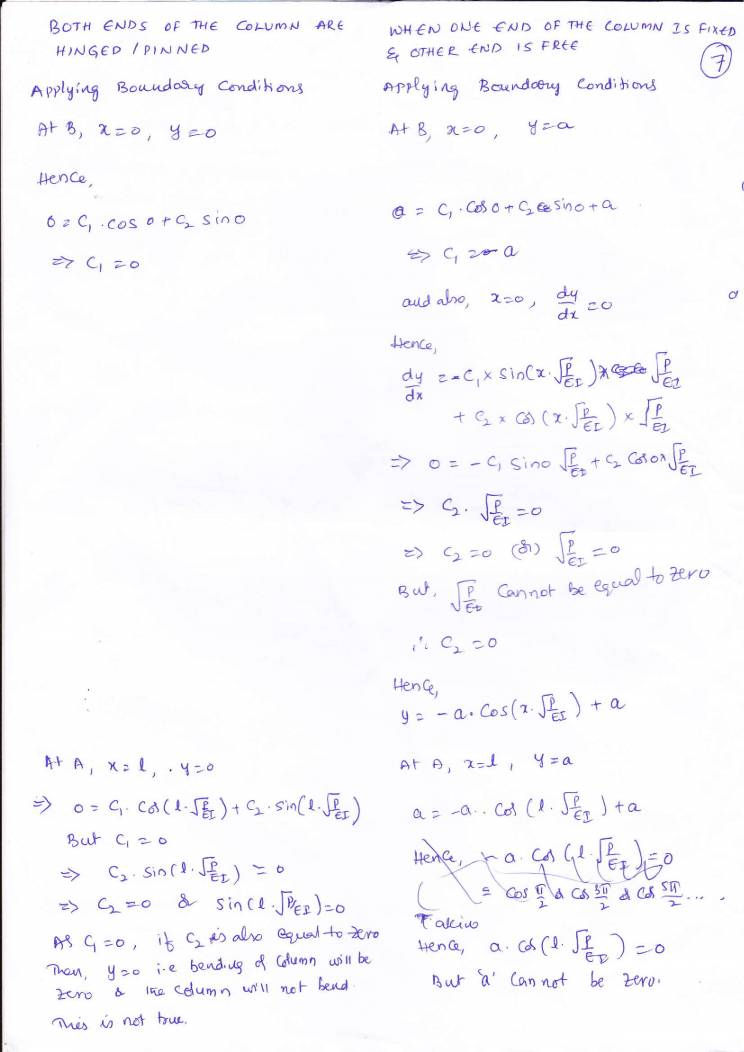 BOTH ENDS OF THE COLUMN ARE
HINGED / PINNED
Applying Boundary Conditions
At B, x=0, y=0
Hence,
0 = C₁ . cos 0 + C₂ sin 0
⇒ C₁ = 0
At A, x = l, . y=0
⇒ 0 = C₁ . Cos (l.√P/EI) + C₂ . sin (l.√P/EI)
But C₁ = 0
⇒ C₂ . sin (l.√P/EI) = 0
⇒ C₂ = 0 & sin (l.√P/EI) = 0
As C₁ = 0, if C₂ is also equal to zero
Then, y=0 i.e bending of Column will be
zero & the column will not bend.
This is not true.
WHEN ONE END OF THE COLUMN IS FIXED
& OTHER END IS FREE
7
Applying Boundary Conditions
At B, x=0, y=a
a = C₁ . Cos 0 + C₂ sin 0 + a
⇒ C₁ = - a
and also, x=0, dy/dx = 0
Hence,
dy/dx = - C₁ × sin (x.√P/EI) × √P/EI
+ C₂ × Cos (x.√P/EI) × √P/EI
⇒ 0 = - C₁ sin 0 √P/EI + C₂ Cos 0 × √P/EI
⇒ C₂ . √P/EI = 0
⇒ C₂ = 0 (or) √P/EI = 0
But, √P/EI Cannot be equal to zero
∴ C₂ = 0
Hence,
y = - a . Cos (x.√P/EI) + a
At A, x=l, y=a
a = -a . . Cos (l.√P/EI) + a
Hence, - a . Cos (l.√P/EI) = 0
= Cos π/2 & Cos 3π/2 & Cos 5π/2 ....
Taking
Hence, a . Cos (l.√P/EI) = 0
But 'a' Cannot be zero.